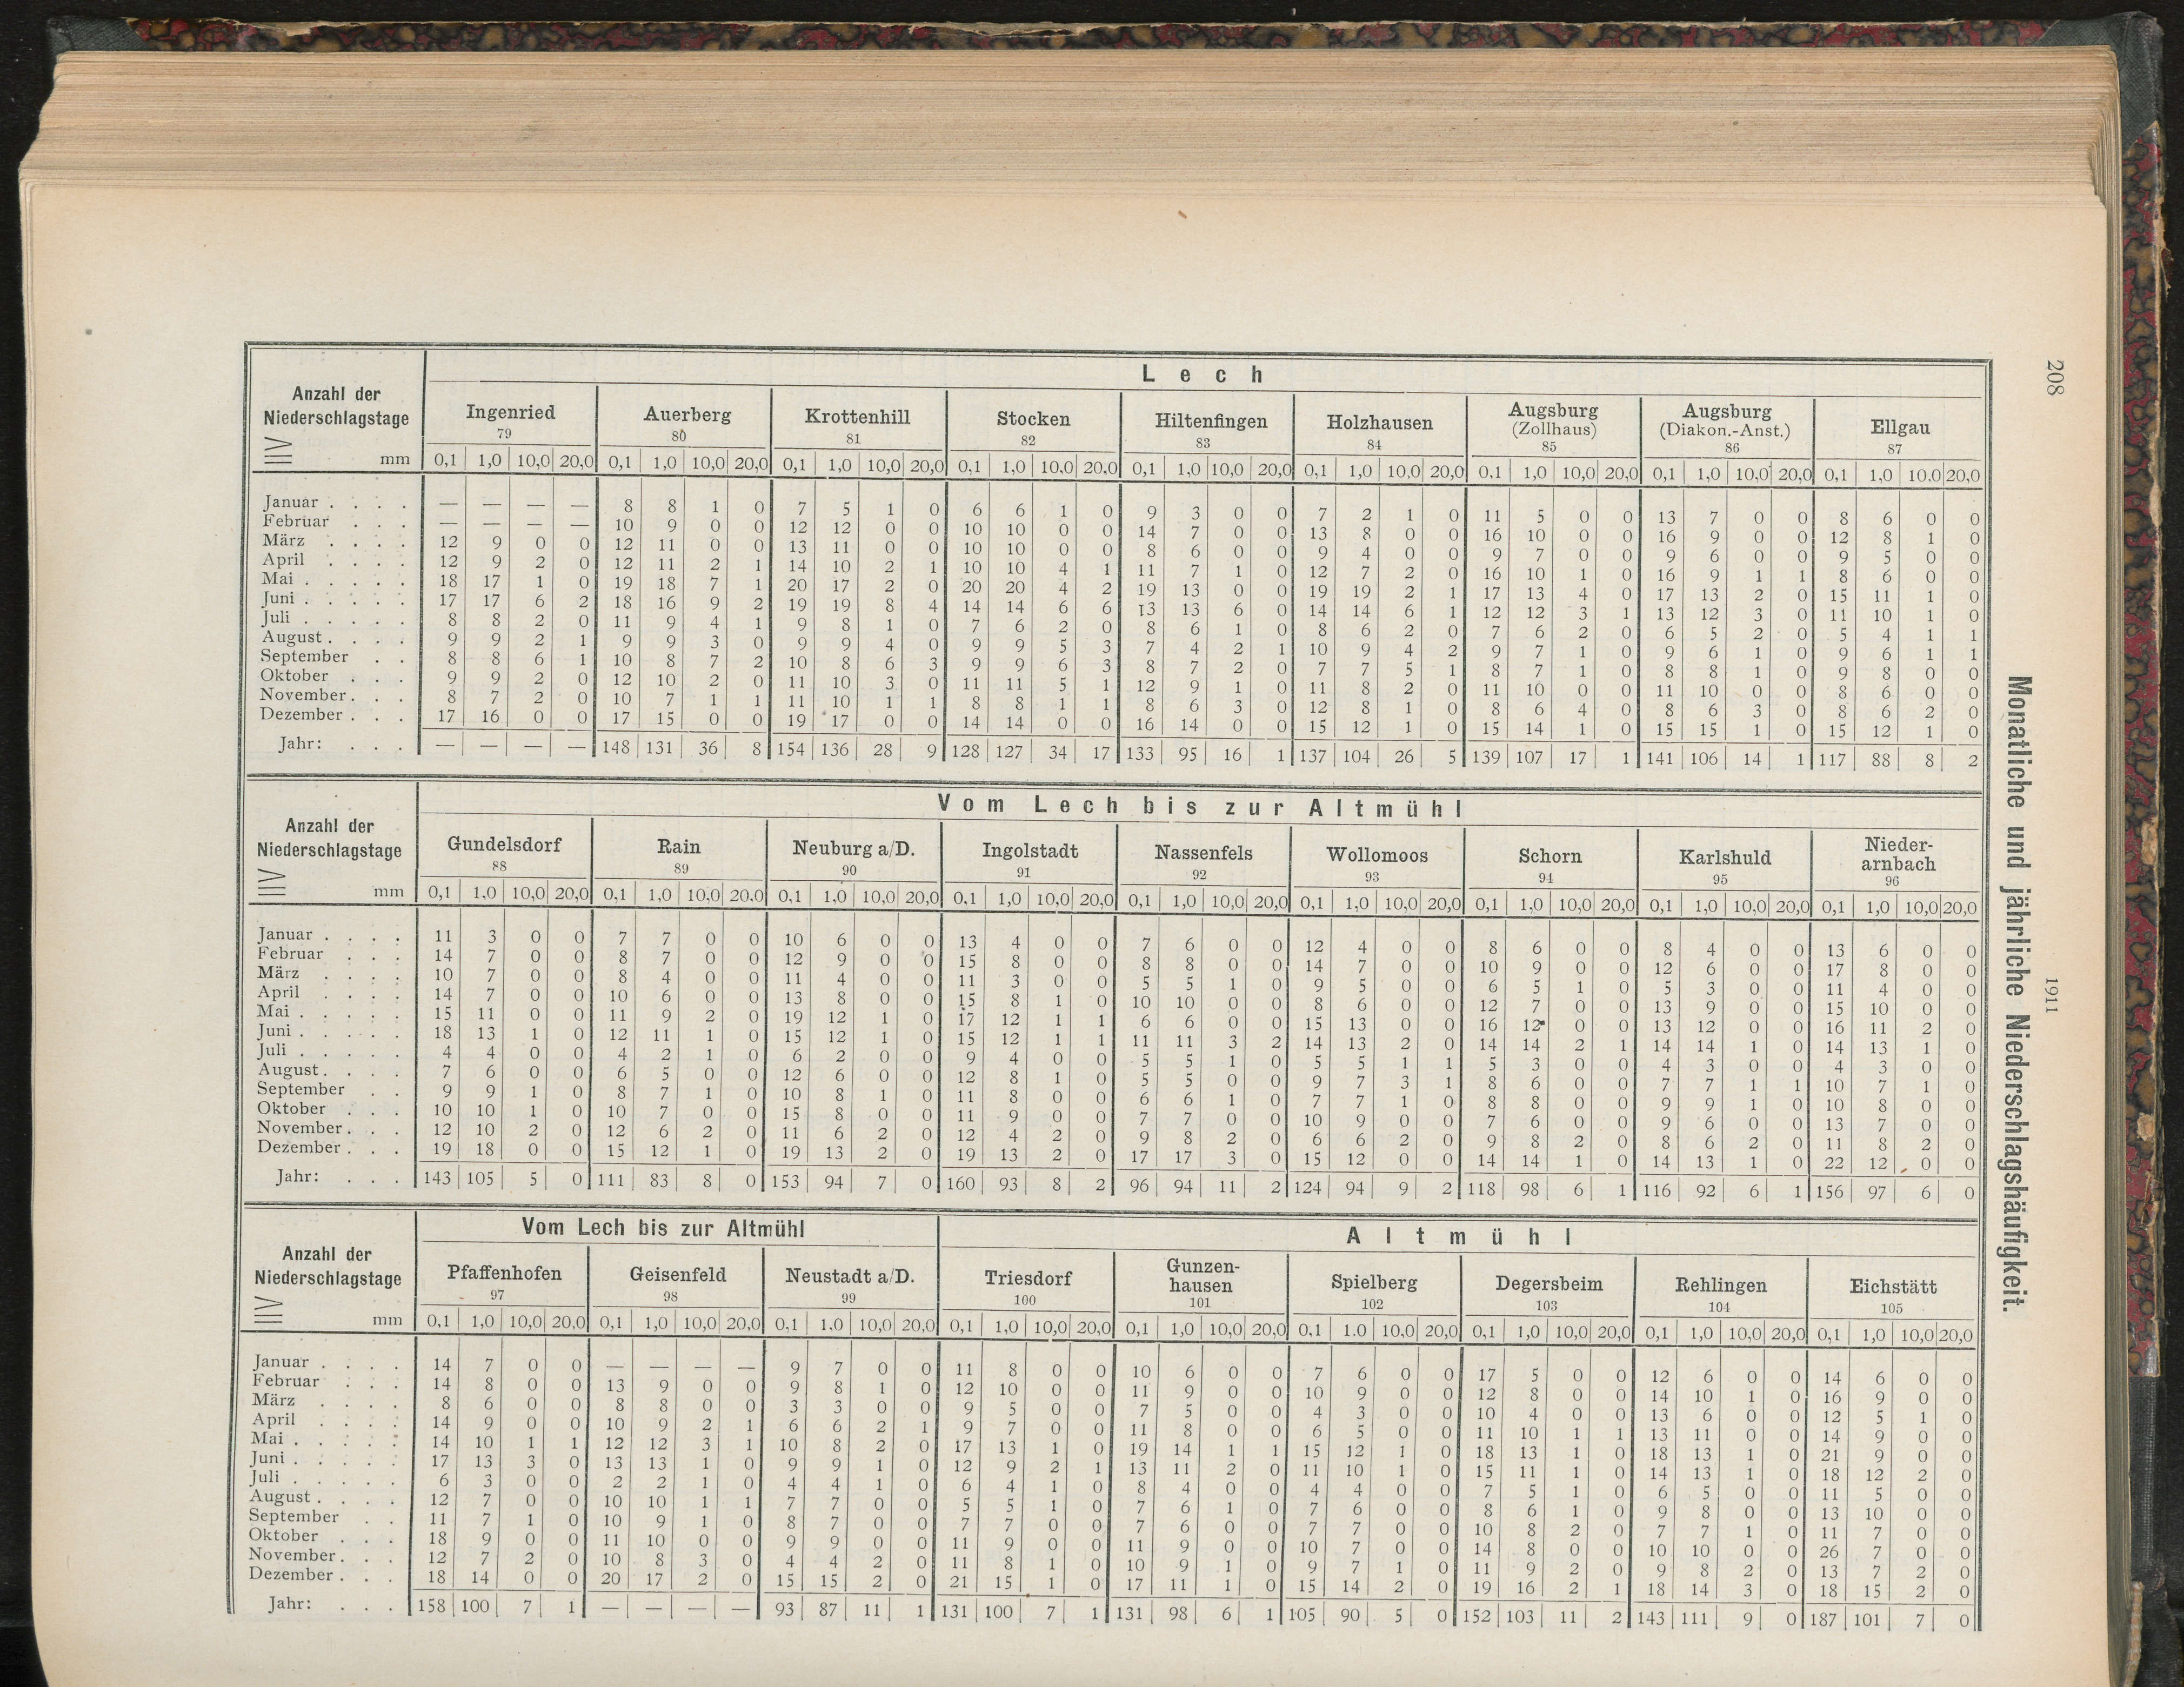 208
1911
Monatliche und jährliche Niederschlagshäufigkeit.
Anzahl der Niederschlagstage ≧ mm
L e c h
Ingenried 79 Auerberg 80 Krottenhill 81 Stocken 82 Hiltenfingen 83 Holzhausen 84 Augsburg (Zollhaus) 85 Augsburg (Diakon.-Anst.) 86 Ellgau 87
0,1 1,0 10,0 20,0 0,1 1,0 10,0 20,0 0,1 1,0 10,0 20,0 0,1 1,0 10,0 20,0 0,1 1,0 10,0 20,0 0,1 1,0 10,0 20,0 0,1 1,0 10,0 20,0 0,1 1,0 10,0 20,0 0,1 1,0 10.0 20,0
Januar . . . . — — — — 8 8 1 0 7 5 1 0 6 6 1 0 9 3 0 0 7 2 1 0 11 5 0 0 13 7 0 0 8 6 0 0
Februar . . . — — — — 10 9 0 0 12 12 0 0 10 10 0 0 14 7 0 0 13 8 0 0 16 10 0 0 16 9 0 0 12 8 1 0
März . . . . 12 9 0 0 12 11 0 0 13 11 0 0 10 10 0 0 8 6 0 0 9 4 0 0 9 7 0 0 9 6 0 0 9 5 0 0
April . . . . 12 9 2 0 12 11 2 1 14 10 2 1 10 10 4 1 11 7 1 0 12 7 2 0 16 10 1 0 16 9 1 1 8 6 0 0
Mai . . . . . 18 17 1 0 19 18 7 1 20 17 2 0 20 20 4 2 19 13 0 0 19 19 2 1 17 13 4 0 17 13 2 0 15 11 1 0
Juni . . . . . 17 17 6 2 18 16 9 2 19 19 8 4 14 14 6 6 13 13 6 0 14 14 6 1 12 12 3 1 13 12 3 0 11 10 1 0
Juli . . . . . 8 8 2 0 11 9 4 1 9 8 1 0 7 6 2 0 8 6 1 0 8 6 2 0 7 6 2 0 6 5 2 0 5 4 1 1
August . . . . 9 9 2 1 9 9 3 0 9 9 4 0 9 9 5 3 7 4 2 1 10 9 4 2 9 7 1 0 9 6 1 0 9 6 1 1
September . . 8 8 6 1 10 8 7 2 10 8 6 3 9 9 6 3 8 7 2 0 7 7 5 1 8 7 1 0 8 8 1 0 9 8 0 0
Oktober . . . 9 9 2 0 12 10 2 0 11 10 3 0 11 11 5 1 12 9 1 0 11 8 2 0 11 10 0 0 11 10 0 0 8 6 0 0
November . . . 8 7 2 0 10 7 1 1 11 10 1 1 8 8 1 1 8 6 3 0 12 8 1 0 8 6 4 0 8 6 3 0 8 6 2 0
Dezember . . . 17 16 0 0 17 15 0 0 19 17 0 0 14 14 0 0 16 14 0 0 15 12 1 0 15 14 1 0 15 15 1 0 15 12 1 0
Jahr: . . . — — — — 148 131 36 8 154 136 28 9 128 127 34 17 133 95 16 1 137 104 26 5 139 107 17 1 141 106 14 1 117 88 8 2
Anzahl der Niederschlagstage ≧ mm
V o m L e c h b i s z u r A l t m ü h l
Gundelsdorf 88 Rain 89 Neuburg a/D. 90 Ingolstadt 91 Nassenfels 92 Wollomoos 93 Schorn 94 Karlshuld 95 Nieder-arnbach 96
0,1 1,0 10,0 20,0 0,1 1,0 10,0 20,0 0,1 1,0 10,0 20,0 0,1 1,0 10,0 20,0 0,1 1,0 10,0 20,0 0,1 1,0 10,0 20,0 0,1 1,0 10,0 20,0 0,1 1,0 10,0 20,0 0,1 1,0 10,0 20,0
Januar . . . . 11 3 0 0 7 7 0 0 10 6 0 0 13 4 0 0 7 6 0 0 12 4 0 0 8 6 0 0 8 4 0 0 13 6 0 0
Februar . . . 14 7 0 0 8 7 0 0 12 9 0 0 15 8 0 0 8 8 0 0 14 7 0 0 10 9 0 0 12 6 0 0 17 8 0 0
März . . . . 10 7 0 0 8 4 0 0 11 4 0 0 11 3 0 0 5 5 1 0 9 5 0 0 6 5 1 0 5 3 0 0 11 4 0 0
April . . . . 14 7 0 0 10 6 0 0 13 8 0 0 15 8 1 0 10 10 0 0 8 6 0 0 12 7 0 0 13 9 0 0 15 10 0 0
Mai . . . . . 15 11 0 0 11 9 2 0 19 12 1 0 17 12 1 1 6 6 0 0 15 13 0 0 16 12 0 0 13 12 0 0 16 11 2 0
Juni . . . . . 18 13 1 0 12 11 1 0 15 12 1 0 15 12 1 1 11 11 3 2 14 13 2 0 14 14 2 1 14 14 1 0 14 13 1 0
Juli . . . . . 4 4 0 0 4 2 1 0 6 2 0 0 9 4 0 0 5 5 1 0 5 5 1 1 5 3 0 0 4 3 0 0 4 3 0 0
August . . . . 7 6 0 0 6 5 0 0 12 6 0 0 12 8 1 0 5 5 0 0 9 7 3 1 8 6 0 0 7 7 1 1 10 7 1 0
September . . 9 9 1 0 8 7 1 0 10 8 1 0 11 8 0 0 6 6 1 0 7 7 1 0 8 8 0 0 9 9 1 0 10 8 0 0
Oktober . . . 10 10 1 0 10 7 0 0 15 8 0 0 11 9 0 0 7 7 0 0 10 9 0 0 7 6 0 0 9 6 0 0 13 7 0 0
November . . . 12 10 2 0 12 6 2 0 11 6 2 0 12 4 2 0 9 8 2 0 6 6 2 0 9 8 2 0 8 6 2 0 11 8 2 0
Dezember . . . 19 18 0 0 15 12 1 0 19 13 2 0 19 13 2 0 17 17 3 0 15 12 0 0 14 14 1 0 14 13 1 0 22 12 0 0
Jahr: . . . 143 105 5 0 111 83 8 0 153 94 7 0 160 93 8 2 96 94 11 2 124 94 9 2 118 98 6 1 116 92 6 1 156 97 6 0
Anzahl der Niederschlagstage ≧ mm
Vom Lech bis zur Altmühl A l t m ü h l
Pfaffenhofen 97 Geisenfeld 98 Neustadt a/D. 99 Triesdorf 100 Gunzen-hausen 101 Spielberg 102 Degersheim 103 Rehlingen 104 Eichstätt 105
0,1 1,0 10,0 20,0 0,1 1,0 10,0 20,0 0,1 1.0 10,0 20,0 0,1 1,0 10,0 20,0 0,1 1,0 10,0 20,0 0,1 1.0 10,0 20,0 0,1 1,0 10,0 20,0 0,1 1,0 10,0 20,0 0,1 1,0 10,0 20,0
Januar . . . . 14 7 0 0 — — — — 9 7 0 0 11 8 0 0 10 6 0 0 7 6 0 0 17 5 0 0 12 6 0 0 14 6 0 0
Februar . . . 14 8 0 0 13 9 0 0 9 8 1 0 12 10 0 0 11 9 0 0 10 9 0 0 12 8 0 0 14 10 1 0 16 9 0 0
März . . . . 8 6 0 0 8 8 0 0 3 3 0 0 9 5 0 0 7 5 0 0 4 3 0 0 10 4 0 0 13 6 0 0 12 5 1 0
April . . . . 14 9 0 0 10 9 2 1 6 6 2 1 9 7 0 0 11 8 0 0 6 5 0 0 11 10 1 1 13 11 0 0 14 9 0 0
Mai . . . . . 14 10 1 1 12 12 3 1 10 8 2 0 17 13 1 0 19 14 1 1 15 12 1 0 18 13 1 0 18 13 1 0 21 9 0 0
Juni . . . . . 17 13 3 0 13 13 1 0 9 9 1 0 12 9 2 1 13 11 2 0 11 10 1 0 15 11 1 0 14 13 1 0 18 12 2 0
Juli . . . . . 6 3 0 0 2 2 1 0 4 4 1 0 6 4 1 0 8 4 0 0 4 4 0 0 7 5 1 0 6 5 0 0 11 5 0 0
August . . . . 12 7 0 0 10 10 1 1 7 7 0 0 5 5 1 0 7 6 1 0 7 6 0 0 8 6 1 0 9 8 0 0 13 10 0 0
September . . 11 7 1 0 10 9 1 0 8 7 0 0 7 7 0 0 7 6 0 0 7 7 0 0 10 8 2 0 7 7 1 0 11 7 0 0
Oktober . . . 18 9 0 0 11 10 0 0 9 9 0 0 11 9 0 0 11 9 0 0 10 7 0 0 14 8 0 0 10 10 0 0 26 7 0 0
November . . . 12 7 2 0 10 8 3 0 4 4 2 0 11 8 1 0 10 9 1 0 9 7 1 0 11 9 2 0 9 8 2 0 13 7 2 0
Dezember . . . 18 14 0 0 20 17 2 0 15 15 2 0 21 15 1 0 17 11 1 0 15 14 2 0 19 16 2 1 18 14 3 0 18 15 2 0
Jahr: . . . 158 100 7 1 — — — — 93 87 11 1 131 100 7 1 131 98 6 1 105 90 5 0 152 103 11 2 143 111 9 0 187 101 7 0